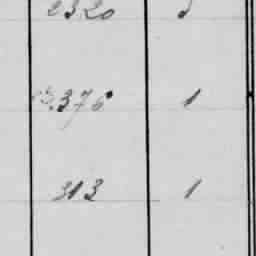 2320
376 1
313 1